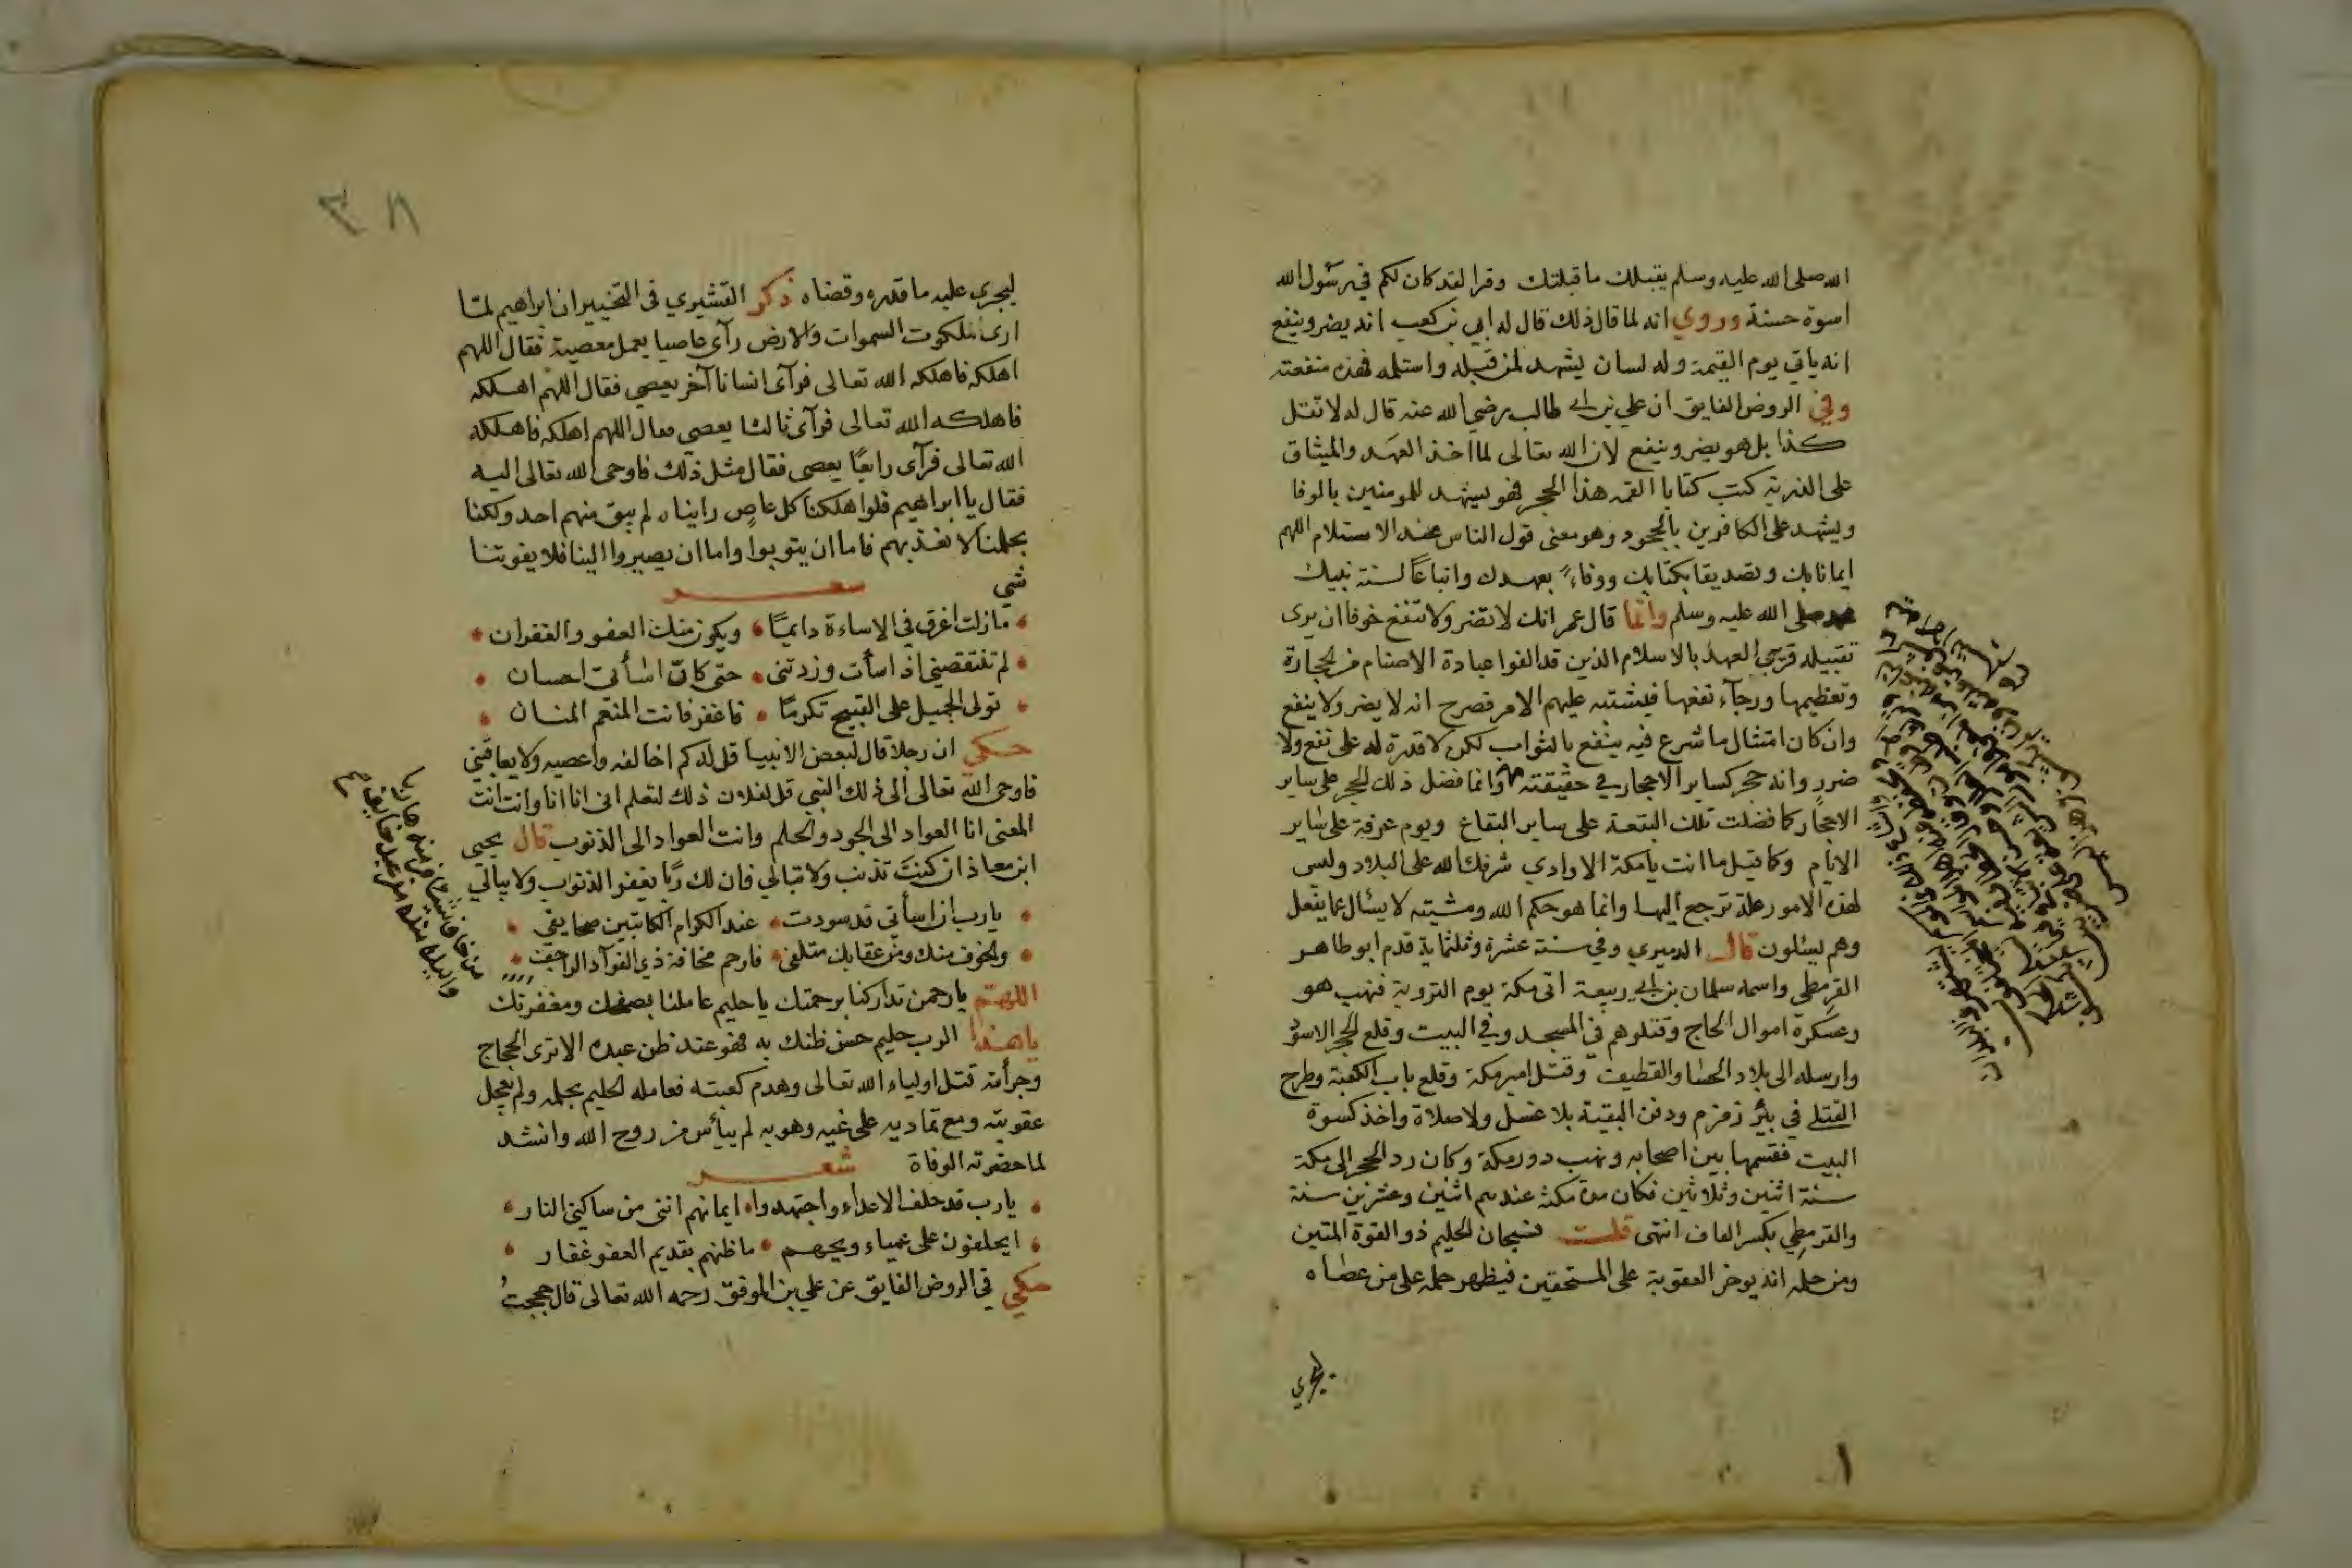 الله صلى الله عليه وسلم يقبلك ما قبلتك وقرا لقد كان لكم في رسول الله
اسوة حسنة وروي انه لما قال ذلك قال له ابي بن كعب انه يضر وينفع
انه ياتي يوم القيمة وله لسان يشهد لمن قبله واستلمه فهذه منفعته
وفي الروض الفايق ان علي بن ابي طالب رضي الله عنه قال له لا تقل
كذا بل هو يضر وينفع لان الله تعالى لما اخذ العهد والميثاق
على الذرية كتب كتابا القمه هذا الحجر فهو يشهد للمومنين بالوفا
ويشهد على الكافرين بالجحود وهو معنى قول الناس عند الاستلام اللهم
ايمانا بك وتصديقا بكتابك ووفاءً بعهدك واتباعاً لسنة نبيك
صلى الله عليه وسلم وانما قال عمر انك لا تضر ولا تنفع خوفا ان يرى
تقبيله قريبي العهد بالاسلام الذين قد الفوا عبادة الاصنام من الحجارة
وتعظيمها ورجآء نفعها فيشتبه عليهم الامر فصرح انه لا يضر ولا ينفع
وان كان امتثال ما شرع فيه ينفع بالثواب لكن لا قدرة له على نفع ولا
ضرر وانه حجر كساير الاحجار في حقيقته وانما فضل ذلك الحجر على ساير
الاحجار كما فضلت تلك البقعة على ساير البقاع ويوم عرفة على ساير
الايام وكما قيل ما انت يا مكة الا وادي شرفك الله على البلاد وليس
لهذه الامور علة ترجع اليها وانما هو حكم الله ومشيته لا يسال عما يفعل
وهم يسئلون قال الدميري وفي سنة عشرة وثلثماية قدم ابو طاهر
القرمطي واسمه سلمان بن ابي ربيعة اتى مكة يوم التروية فنهب هو
وعسكرة اموال الحاج وقتلوهم في المسجد وفي البيت وقلع الحجر الاسود
وارسله الى بلاد الحسا والقطيف وقتل امير مكة وقلع باب الكعبة وطرح
القتلى في بئر زمزم ودفن البقية بلا غسل ولا صلاة واخذ كسوة
البيت فقسمها بين اصحابه ونهب دور مكة وكان رد الحجر الى مكة
سنة اثنين وثلاثين فكان مدة مكثه عندهم اثنين وعشرين سنة
والقرمطي بكسر القاف انتهى قلت فسبحان الحليم ذو القوة المتين
ومن حلمه انه يوخر العقوبة على المستحقين فيظهر حلمه على من عصاه
ليجري
١
٣٨
ليجرى عليه ما قدره وقضاه ذكر القشيري في التخيير ان ابراهيم لما
ارى ملكوت السموات والارض رآى عاصيا يعمل معصية فقال اللهم
اهلكه فاهلكه الله تعالى فرآى انسانا آخر يعصي فقال اللهم اهلكه
فاهلكه الله تعالى فرآى ثالثا يعصي فقال اللهم اهلكه فاهلكه
الله تعالى فرآى رابعًا يعصى فقال مثل ذلك فاوحى الله تعالى اليه
فقال يا ابراهيم فلو اهلكنا كل عاصٍ رايناه لم يبق منهم احد ولكنا
بحلمنا لا نعذبهم فاما ان يتوبوا واما ان يصيروا الينا فلا يفوتنا
شي شعر
ما زلت اغرق في الاساءة دايمًا ويكون منك العفو والغفران
لم تنتقصني اذ اسأت وزدتنى حتى كانّ اسأتى احسان
تولى الجميل على القبيح تكرمًا فاغفر فانت المنعم المنان
حكي ان رجلا قال لبعض الانبيا قل له كم اخالفه واعصيه ولا يعاقبني
فاوحى الله تعالى الى ذلك النبي قل لفلان ذلك لتعلم انى انا انا وانت انت
المعنى انا العواد الى الجود والحلم وانت العواد الى الذنوب قال يحيى
ابن معاذ ان كنت تذنب ولا تبالي فان لك ربًا يغفر الذنوب ولا يبالي
يا رب ان اسأتي قد سودت عند الكرام الكاتبين صحايفي
والخوف منك ومن عقابك متلفى فارحم مخافة ذي الفوآد الراجف
اللهم يا رحمن تداركنا برحمتك يا حليم عاملنا بصفحك ومغفرتك
يا هذا الرب حليم حسن ظنك به فهو عند ظن عبده الا ترى الحجاج
وجرأته قتل اولياء الله تعالى وهدم كعبته فعامله الحليم بحلمه ولم يعجل
عقوبته ومع تماديه على غيه وهو به لم ييأس من روح الله وانشد
لما حضرته الوفاة شعر
يا رب قد حلف الاعداء واجتهدوا ايمانهم اننى من ساكني النار
ايحلفون على عمياء ويحهم ما ظنهم بقديم العفو غفار
حكي في الروض الفايق عن علي بن الموفق رحمه الله تعالى قال حججتُ